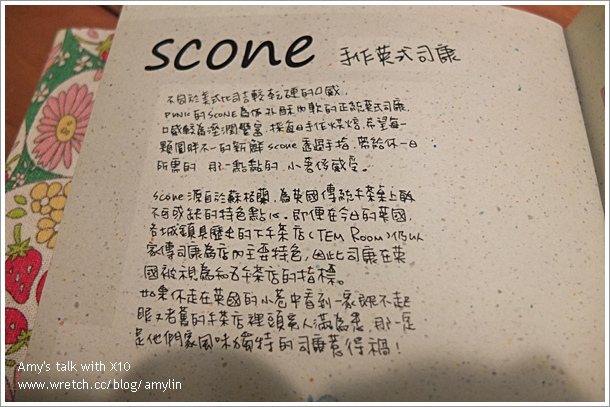 scone 手作英式司康
不同於美式比司吉較乾硬的口感,
PUNK的SCONE為係外酥內軟的正統英式司康,
口感較為溼潤豐富,採每日手作烘焙,希望每一
顆圓時不一的新鮮scone透過手指,帶給你一日
所需的 那一點點的 小奢侈感受。
scone源自於蘇格蘭,為英國傳統午茶桌上最
不可或缺的特色點心。即便在今日的英國,
各城鎮具歷史的下午茶店(TEM Room)仍以
家傳司康為店內主要特色,因此司康在英
國被視為和午茶店的指標。
如果你走在英國的小巷中看到一家毫不起
眼又老舊的午茶店裡頭竟人滿為患,那一定
是他們家風味獨特的司康惹得禍!
Amy's talk with X10
www.wretch.cc/blog/amylin